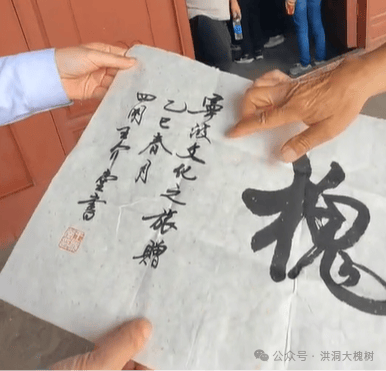 槐
寧波文化之旅贈
乙巳春月
四明王介堂書
公众号 · 洪洞大槐树